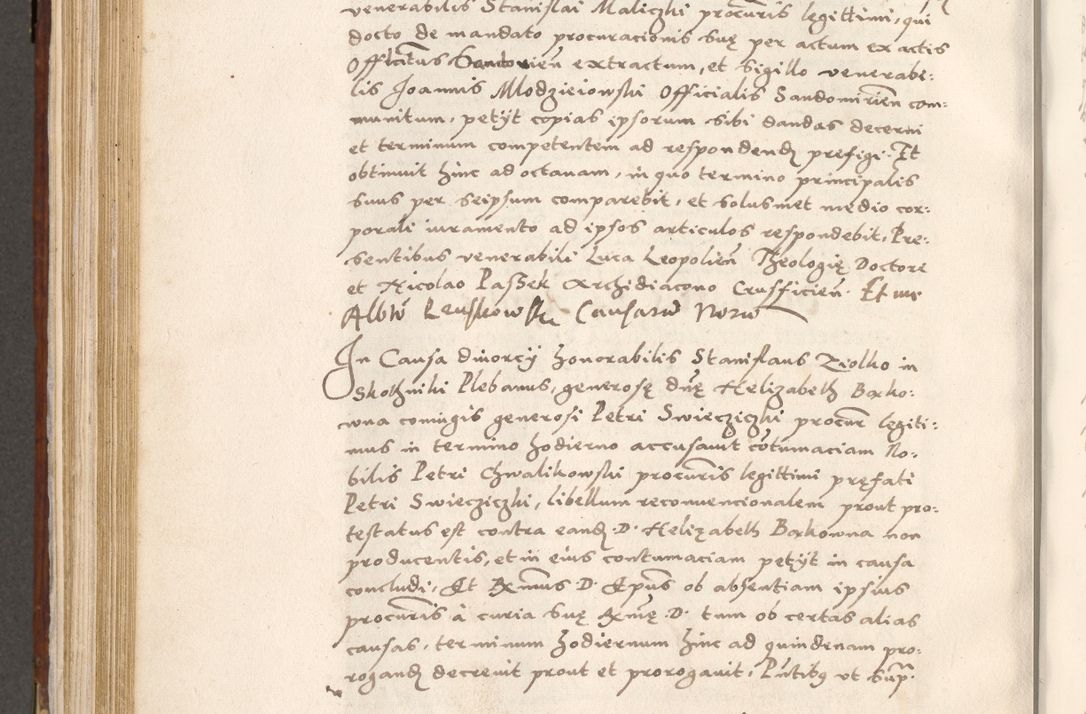 venerabilis Stanislai Maliczki procuris legittimi, qui
docto de mandato procuracionis suę per actum ex actis
Officiatus Sandomirien extractum, et sigillo venerabi:
lis Joannis Mlodzieiowski Officialis Sandomirien com=
munitum, petÿt copias ipsorum sibi dandas decerni
et terminum competentem ad respondend prefigi. Et
obtinuit hinc ad octauam, in quo termino principalis
suus per seipsum comparebit, et solusmet medio cor:
porali iuramento ad ipsos articulos respondebit, Pre:
sentibus venerabili Luca Leopolien Theologię Doctore
et Nicolao Paszek Archidiacono Crusficien. Et me
Albto Leuskowski Causarum Notario
In Causa diuorcÿ honorabilis Stanislaus Ziolko in
Skotniki Plebanus, generosę dnę Helizabeth Borko:
wna coniugis generosi Petri Swiecziczki procur legiti:
mus in termino hodierno accusauit cotumaciam No:
bilis Petri Chwalikowski procuris legittimi pręfati
Petri Swiecziczki, libellum reconuencionalem prout pro:
testatus est contra eand D. Helizabeth Borkowna non
producentis, et in eius contumaciam petÿt in causa
concludi, Et Rmus D. Epus ob absentiam ipsius
procuris à curia suę Rmę D. tum ob certas alias
causas, terminum hodiernum hinc ad quindenam pro:
rogand decreuit prout et prorogauit, Pntibq ut sup.